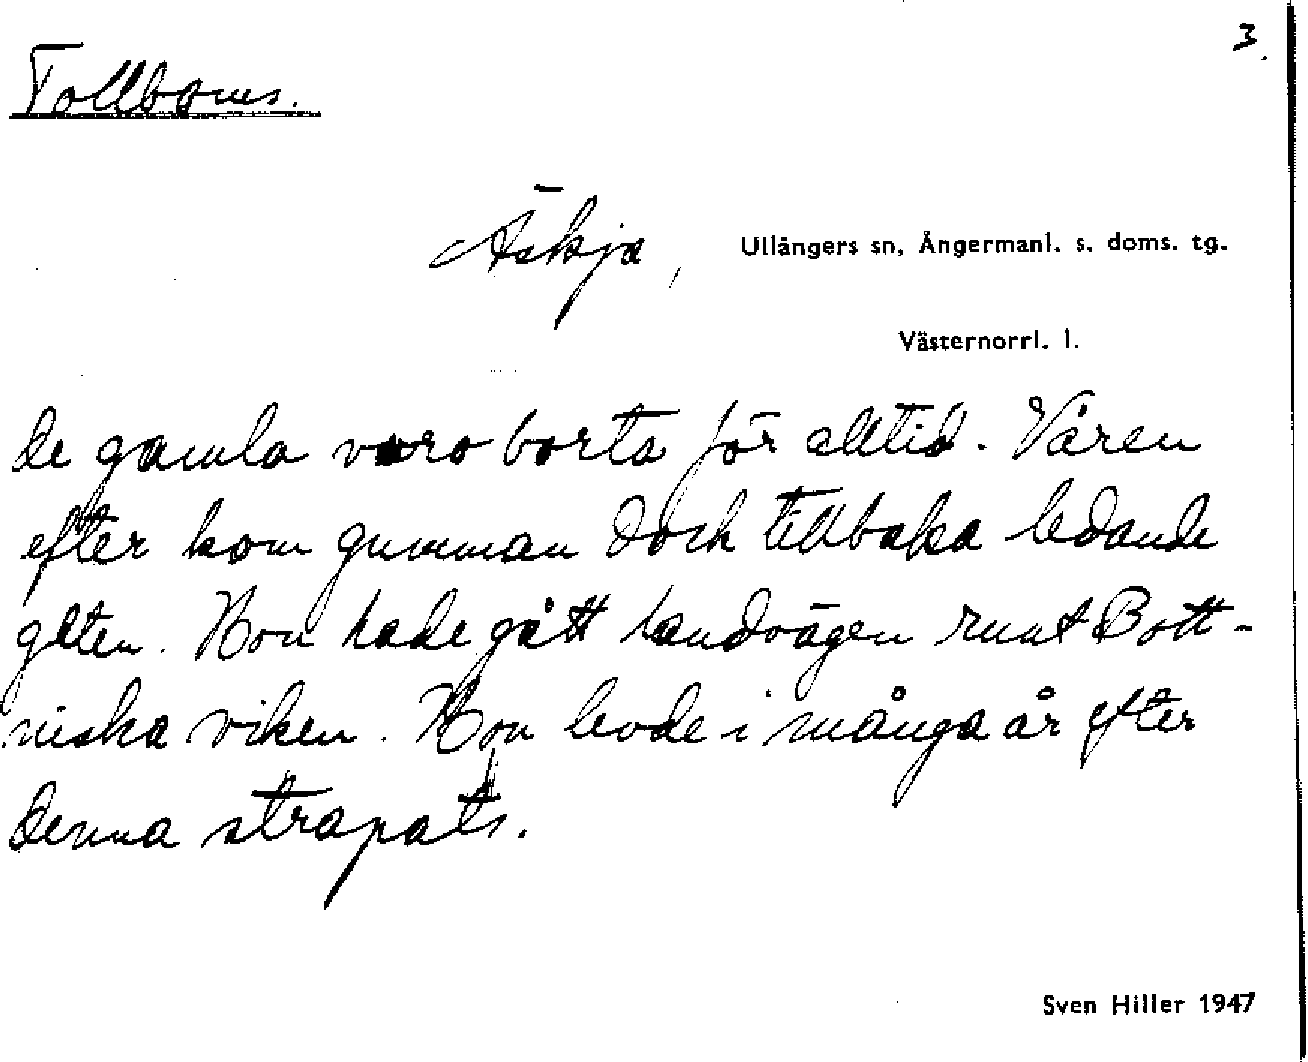 3.
Tollboms.
Äskja, Ullångers sn, Ångermanl. s. doms. tg.
Västernorrl. l.
de gamla voro borta för alltid. Våren
efter kom gumman doch tillbaka ledande
geten. Hon hade gått landvägen runt Bott-
niska viken. Hon levde i många år efter
denna strapats.
Sven Hiller 1947